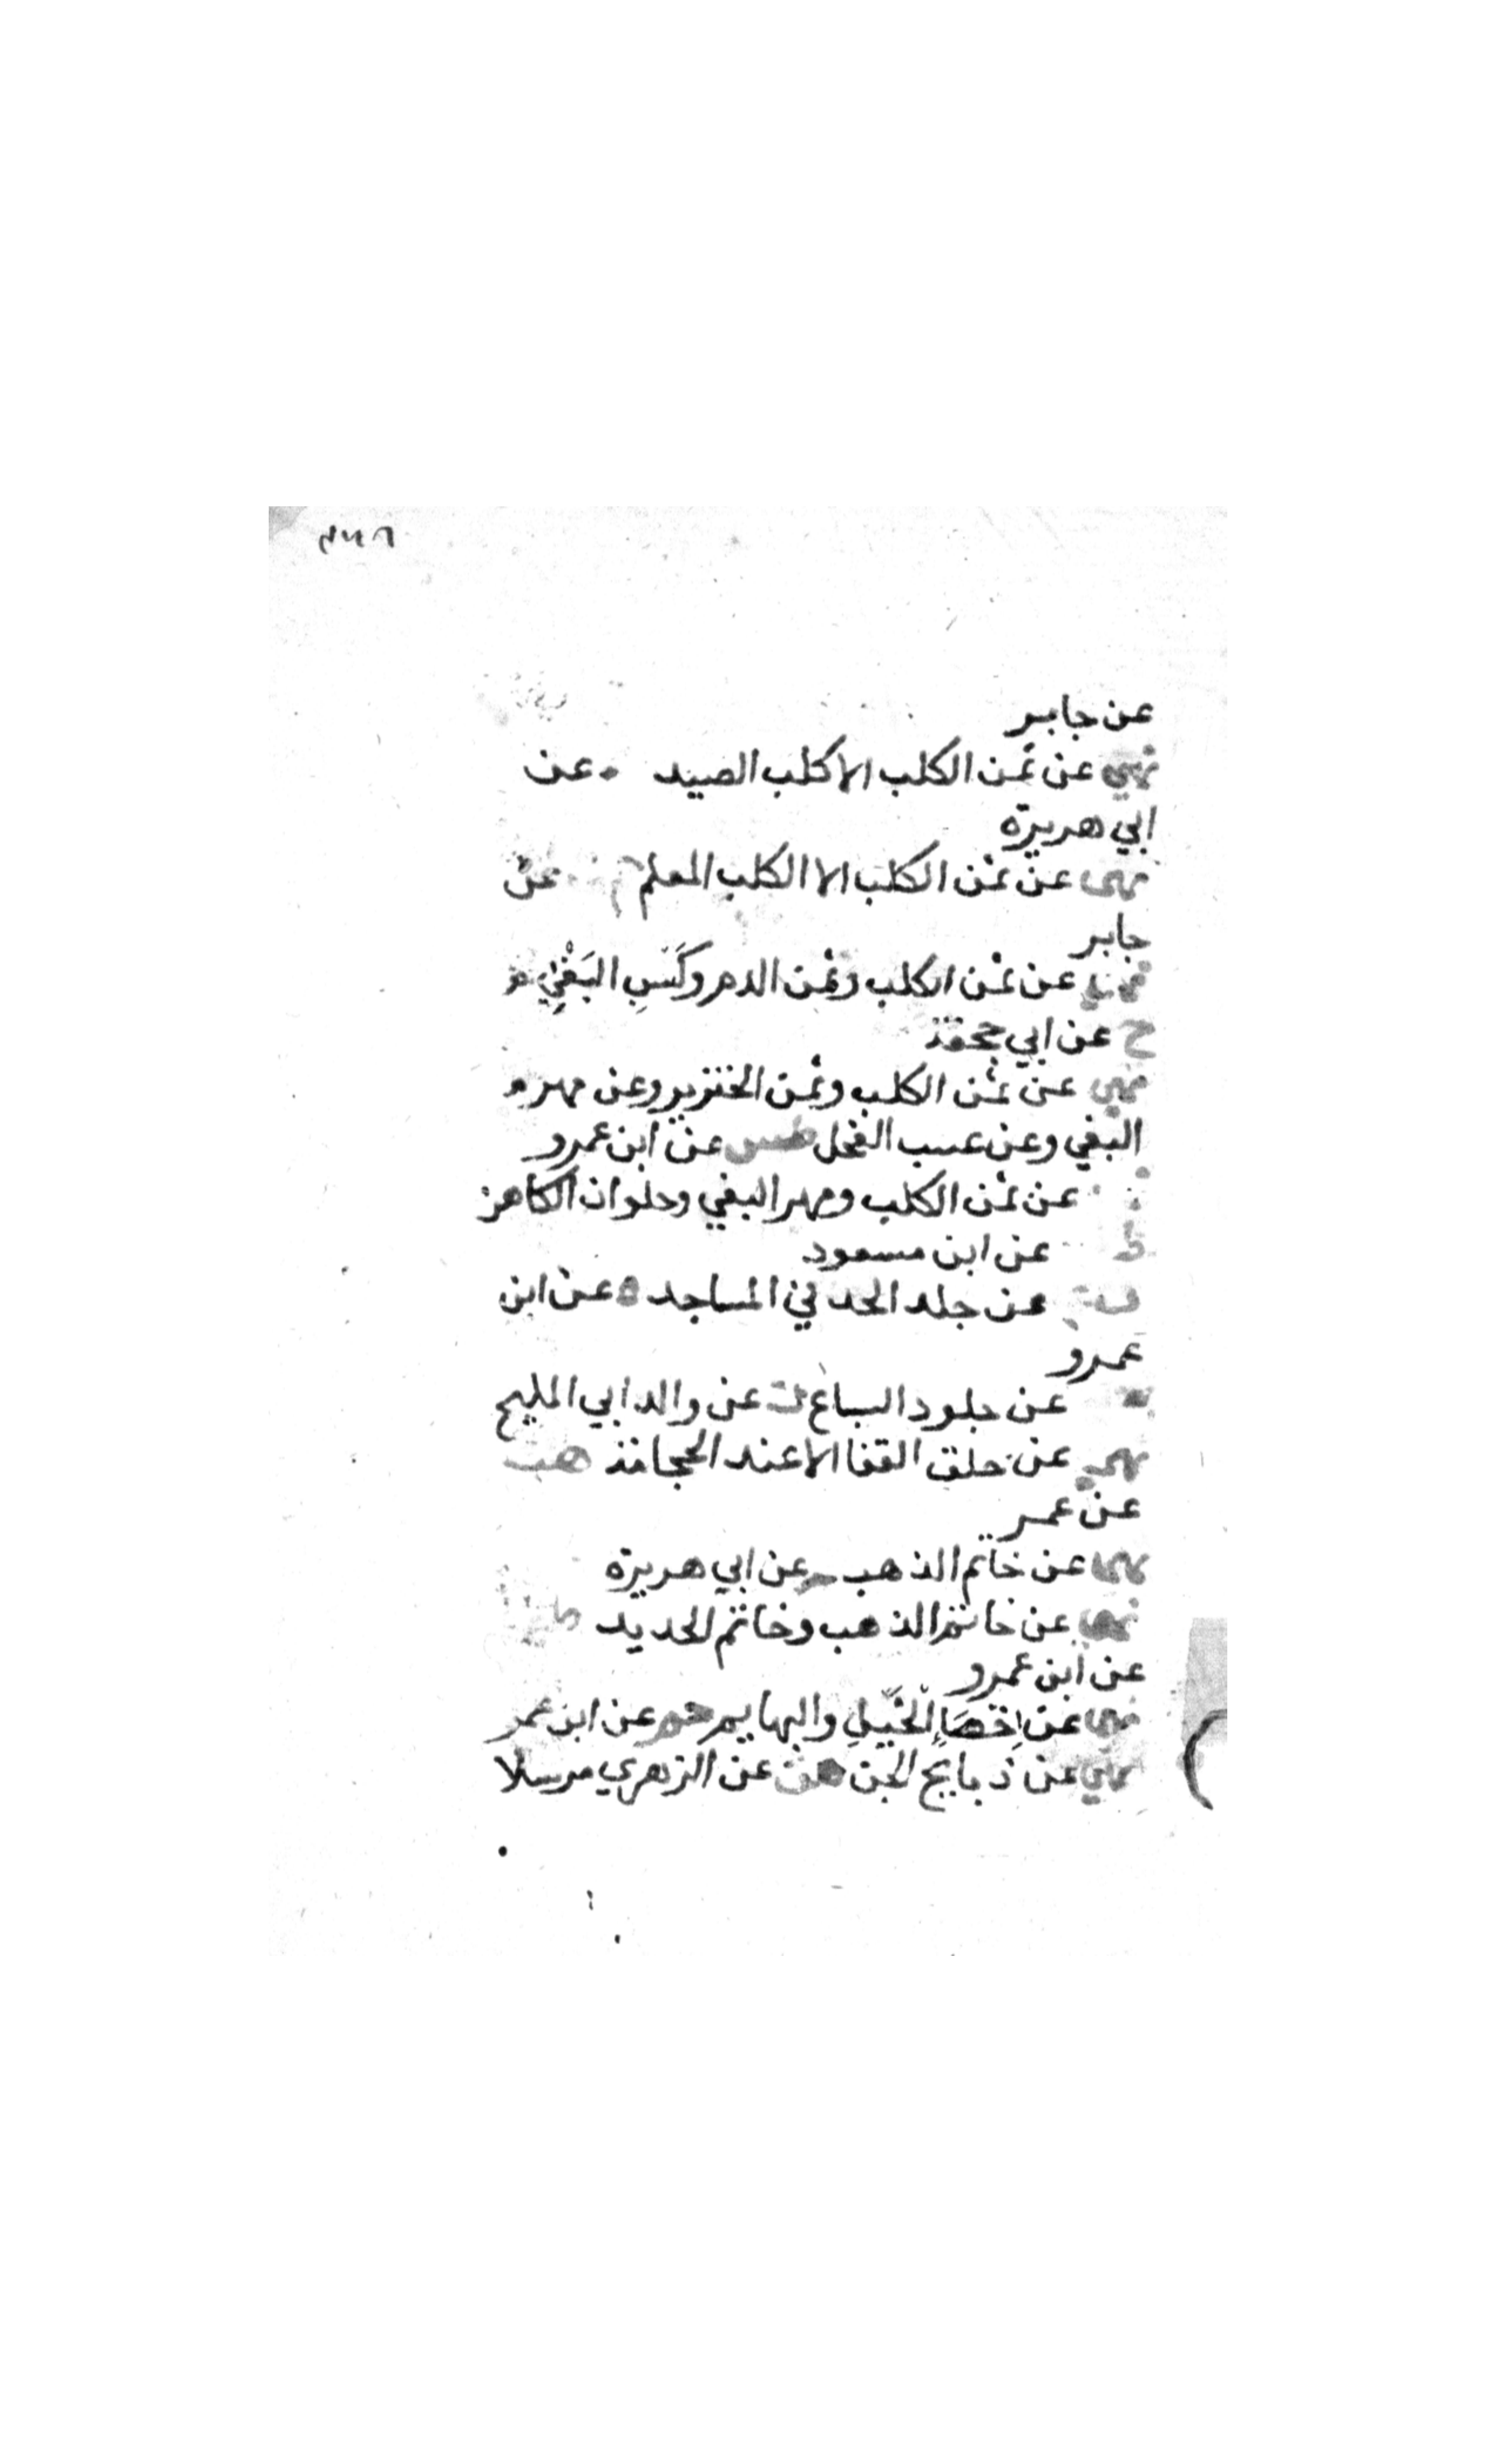 عن جابر
نهي عن ثمن الكلب الا كلب الصيد عن
ابي هريرة
نهى عن ثمن الكلب الا الكلب المعلم عن
جابر
عن ثمن الكلب وثمن الدم وكسب البَغْيِ
ح عن ابي جحيفة
نهي عن ثمن الكلب وثمن الخنزير وعن مهر
البغي وعن عسب الفحل طس عن ابن عمرو
عن ثمن الكلب ومهر البغي وحلوان الكاهن
عن ابن مسعود
عن جلد الحد في المساجد ه عن ابن
عمرو
عن جلود السباع ك عن والد ابي المليح
نهى عن حلق القفا الا عند الحجامة هب
عن عمر
نهى عن خاتم الذهب م عن ابي هريرة
نهى عن خاتم الذهب وخاتم الحديد
عن ابن عمرو
نهى عن اِخْصَاءِ الخَيْلِ والبهايم حم عن ابن عمر
نهي عن ذبايح الجن هق عن الزهري مرسلا